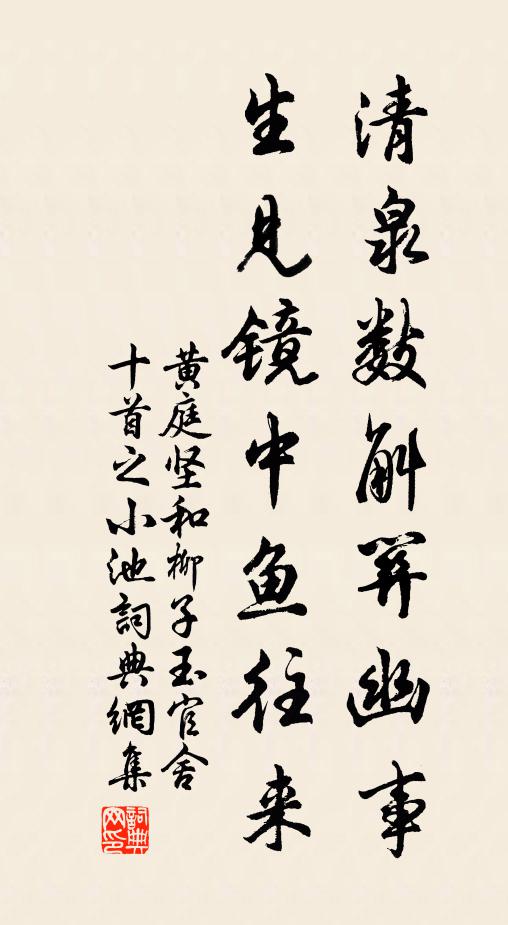 清泉数斛幽事
生见镜中鱼往来
黄庭坚和柳子玉官舍
十首之小池詞典網集
詞典
网印